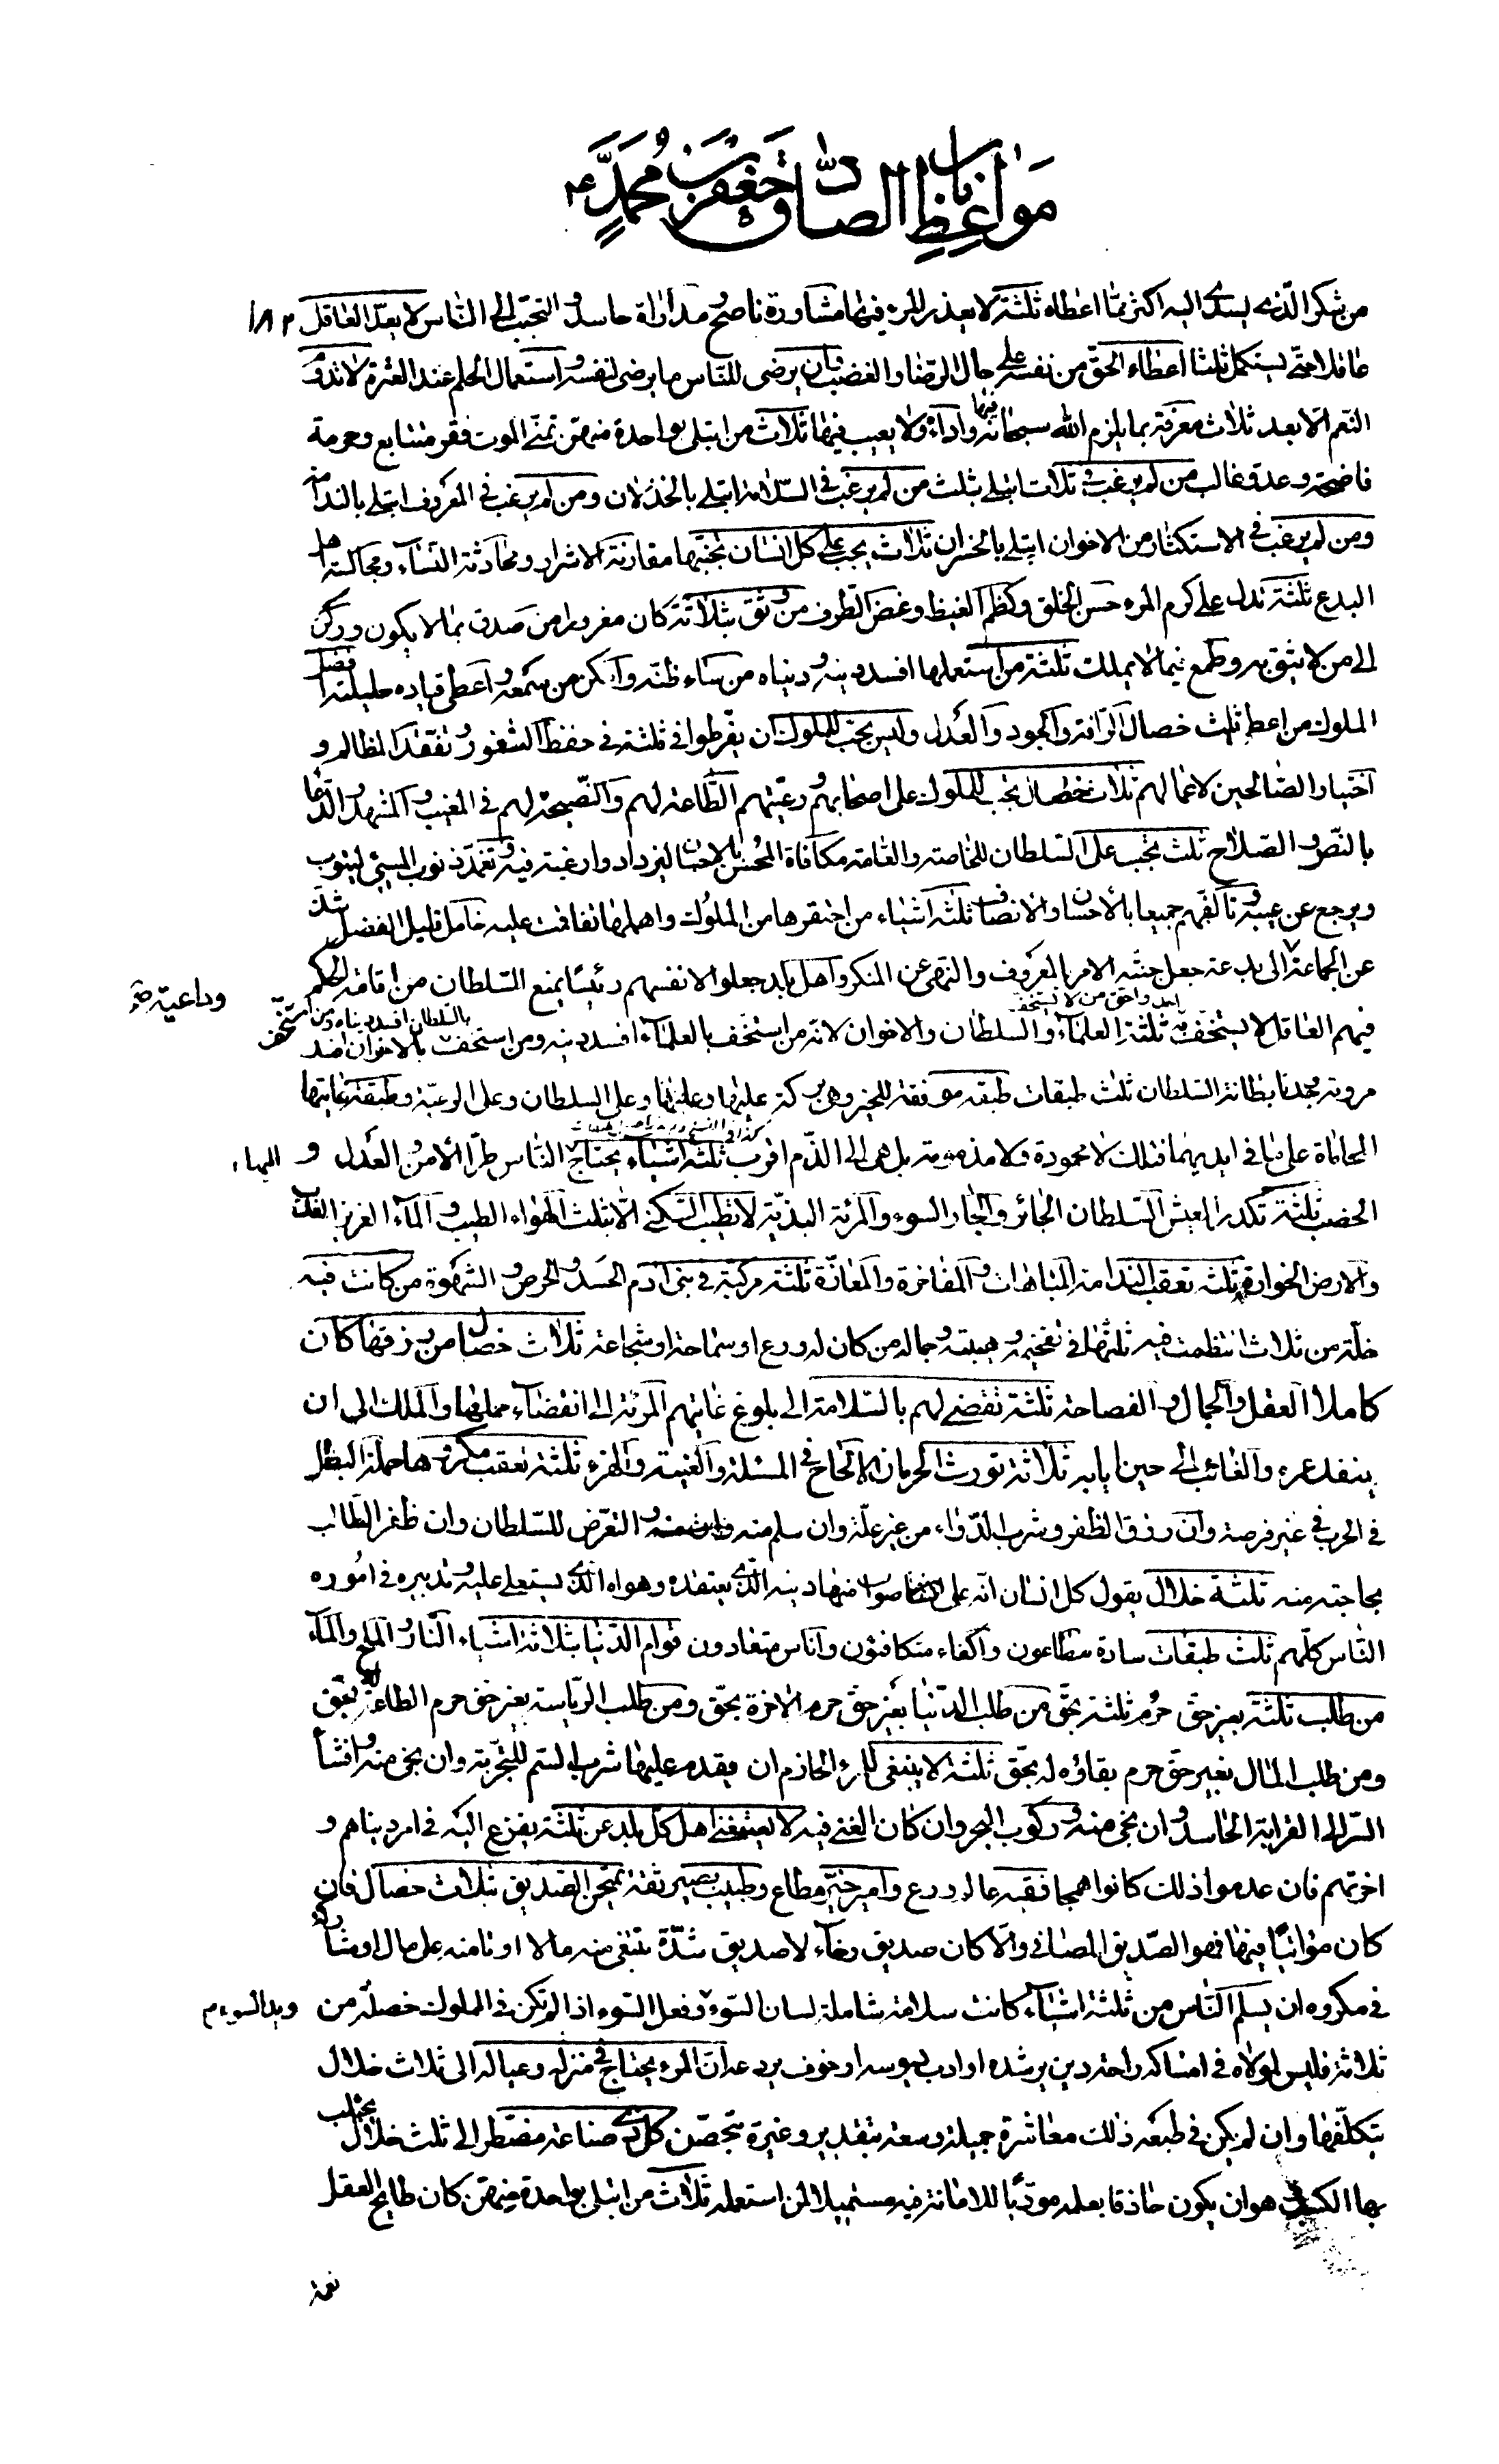 باب مواعظ الصادق جعفر بن محمد ع
من شكر الذي يسدى اليه اكثر مما اعطاه ثلثة لا يعذر المرء فيها مشاورة ناصح و مداراة حاسد و التحبب الى الناس لا يعد العاقل ١٨٢
عاقلا حتى يستكمل ثلثا اعطاء الحق من نفسه على حال الرضا و الغضب و ان يرضى للناس ما يرضى لنفسه و استعمال الحلم عند العثرة لا تدوم
النعم الا بعد ثلاث معرفة بما يلزم الله سبحانه فيها و اداء و لا يعيب فيها ثلاث من ابتلى بواحدة منهن تمنى الموت فقر متتابع و حرمة
فاضحة و عدو غالب من لم يرغب في ثلاث ابتلي بثلث من لم يرغب في السلامة ابتلي بالخذلان و من لم يرغب في المعروف ابتلي بالندامة
و من لم يرغب في الاستكثار من الاخوان ابتلي بالخسران ثلاث يجب على كل انسان تجنبها مقارنة الاشرار و محادثة النساء و مجالسة اهل
البدع ثلثة تدل على كرم المرء حسن الخلق و كظم الغيظ و غض الطرف من وثق بثلاثة كان مغرورا من صدق بما لا يكون و ركن
الى من لا يثق به و طمع فيما لا يملك ثلثة من استعملها افسد دينه و دنياه من ساء ظنه و امكن من سمعه و اعطى قياده حليلته افضل
الملوك من اعطي ثلث خصال الرأفة و الجود و العدل و ليس يحب للملوك ان يفرطوا في ثلثة في حفظ الثغور و تفقد المظالم و
اختيار الصالحين لاعمالهم ثلاث خصال تجب للملوك على اصحابهم و رعيتهم الطاعة لهم و النصيحة لهم في المغيب و المشهد و الدعاء
بالنصر و الصلاح ثلث تجب على السلطان للخاصة و العامة مكافاة المحسن بالاحسان ليزدادوا رغبة فيه و تغمد ذنوب المسيئ ليتوب
و يرجع عن عيبه و تألفهم جميعا بالاحسان و الانصاف ثلثة اشياء من احتقرها من الملوك و اهملها تفاقمت عليه خامل قليل الفضل شذ
عن الجماعة و داعية الى بدعة جعل جنته الامر بالمعروف و النهى عن المنكر و اهل بلد جعلوا لانفسهم رئيسا يمنع السلطان من اقامة الحكم
فيهم العاقل لا يستخف باحد و احق من لا يستخف به ثلثة العلماء و السلطان و الاخوان لانه من استخف بالعلماء افسد دينه و من استخف بالسلطان افسد دنياه و من استخف بالاخوان افسد
مروته وجدنا بطانة السلطان ثلث طبقات طبقة موفقة للخير و هي بركة عليها و على السلطان و على الرعية و طبقة غايتها
المحاماة على ما في ايديهما فتلك لا محمودة و لا مذمومة بل هى الى الذم اقرب ثلثة اشياء يحتاج الناس طرا اليها الامن و العدل و
الخصب ثلثة تكدر العيش السلطان الجائر و الجار السوء و المرئة البذية لا تطيب السكنى الا بثلث الهواء الطيب و الماء الغزير العذب
و الارض الخوارة ثلثة تعقب الندامة المباهات و المفاخرة و المعازة ثلثة مركبة في بنى ادم الحسد و الحرص و الشهوة من كانت فيه
خلة من ثلاث انتظمت فيه ثلثها في تفخيمه و هيبته و جماله من كان له ورع او سماحة او شجاعة ثلاث خصال من رزقها كان
كاملا العقل و الجمال و الفصاحة ثلثة تقضي لهم بالسلامة الى بلوغ غايتهم المرئة الى انقضاء حملها و الملك الى ان
ينفد عمره و الغائب الى حين ايابه ثلاثة تورث الحرمان الالحاح في المسئلة و الغيبة و الهزء ثلثة تعقب مكروها حملة البطل
في الحرب في غير فرصة و ان رزق الظفر و شرب الدواء من غير علة و ان سلم منه و التعرض للسلطان و ان ظفر الطالب
بحاجته منه ثلثة خلال يقول كل انسان انه على صواب منها دينه الذي يعتقده و هواه الذي يستعلي عليه و تدبيره في اموره
الناس كلهم ثلث طبقات سادة مطاعون و اكفاء متكافئون و اناس متعادون قوام الدنيا بثلاثة اشياء النار و الملح و الماء
من طلب ثلثة بغير حق حرم ثلثة بحق من طلب الدنيا بغير حق حرم الاخرة بحق و من طلب الرياسة بغير حق حرم الطاعة له بحق
و من طلب المال بغير حق حرم بقاؤه له بحق ثلثة لا ينبغى للمرء الحازم ان يقدم عليها شرب السم للتجربة و ان نجى منه و افشاء
السر الى القرابة الحاسد و ان نجى منه و ركوب البحر و ان كان الغنى فيه لا يستغنى اهل كل بلد عن ثلثة يفزع اليه في امر دنياهم و
اخرتهم فان عدموا ذلك كانوا همجا فقيه عالم ورع و امير خير مطاع و طبيب بصير ثقة يمتحن الصديق بثلاث خصال فان
كان مؤاتيا فيها فهو الصديق المصافي و الا كان صديق رخاء لا صديق شدة تبتغى منه مالا او تامنه على مال او مشاركة
في مكروه ان يسلم الناس من ثلثة اشياء كانت سلامة شاملة لسان السوء و يد السوء و فعل السوء اذا لم تكن في المملوك خصلة من
ثلاثة فليس لمولاه في امساكه راحة دين يرشده او ادب يسوسه او خوف يردعه ان المرء يحتاج في منزله و عياله الى ثلاث خلال
يتكلفها و ان لم يكن في طبعه ذلك معاشرة جميلة و سعة بتقدير و غيرة بتحصن كل ذي صناعة مضطر الى ثلث خلال يجتلب
بها الكسب هو ان يكون حاذقا بعلمه مؤديا للامانة فيه مستميلا لمن استعمله ثلاث من ابتلى بواحدة منهن كان طايح العقل
نعمة